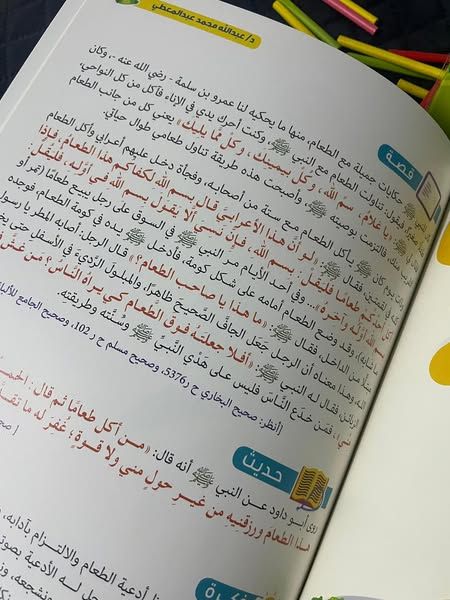 د/ عبدالله محمد عبدالمعطي
قصة
حكايات جميلة مع الطعام، منها ما يحكيه لنا عمرو بن سلمة - رضي الله عنه -، وكان
فيقول: تناولت الطعام مع النبي ﷺ، وكنت أحرك يدي في الإناء فآكل من كل النواحي،
النبي ﷺ: «يا غلام، سم الله، وكل بيمينك، وكل مما يليك» يعني كل من جانب الطعام
فالتزمت بوصيته ﷺ، وأصبحت هذه طريقة تناول طعامي طوال حياتي.
يوم كان ﷺ يأكل الطعام مع ستة من أصحابه، وفجأة دخل عليهم أعرابي وأكل الطعام
فقال ﷺ: «لو أن هذا الأعرابي قال بسم الله لكفاكم هذا الطعام، فإذا
أكل أحدكم طعاما فليقل: بسم الله، فإن نسي ألا يقول بسم الله في أوله، فليقل
بسم الله أوله وآخره»... وفي أحد الأيام مر النبي ﷺ في السوق على رجل يبيع طعامًا (تمر أو
وقد وضع الطعام أمامه على شكل كومة، فأدخل ﷺ يده في كومة الطعام، فوجده
من الداخل، فقال ﷺ: «ما هذا يا صاحب الطعام؟» قال الرجل: أصابه المطر يا رسول
الله، وهذا معناه أن الرجل جعل الجاف الصحيح ظاهرا، والمبلول الرديء في الأسفل حتى
فقال له النبي ﷺ: «أفلا جعلته فوق الطعام كي يراه الناس؟ من غش
مني»، فمن خدع الناس فليس على هدي النبي ﷺ وسنته وطريقته.
(انظر: صحيح البخاري ح ر 5376، وصحيح مسلم ح ر 102، وصحيح الجامع للألباني
حديث
روى أبو داود عن النبي ﷺ أنه قال: «من أكل طعامًا ثم قال: الحمد
هذا الطعام ورزقنيه من غير حول مني ولا قوة؛ غفر له ما تقدم
فكرة
أدعية الطعام والالتزام بآدابه،
له الأدعية بصوت
ونشجعه،